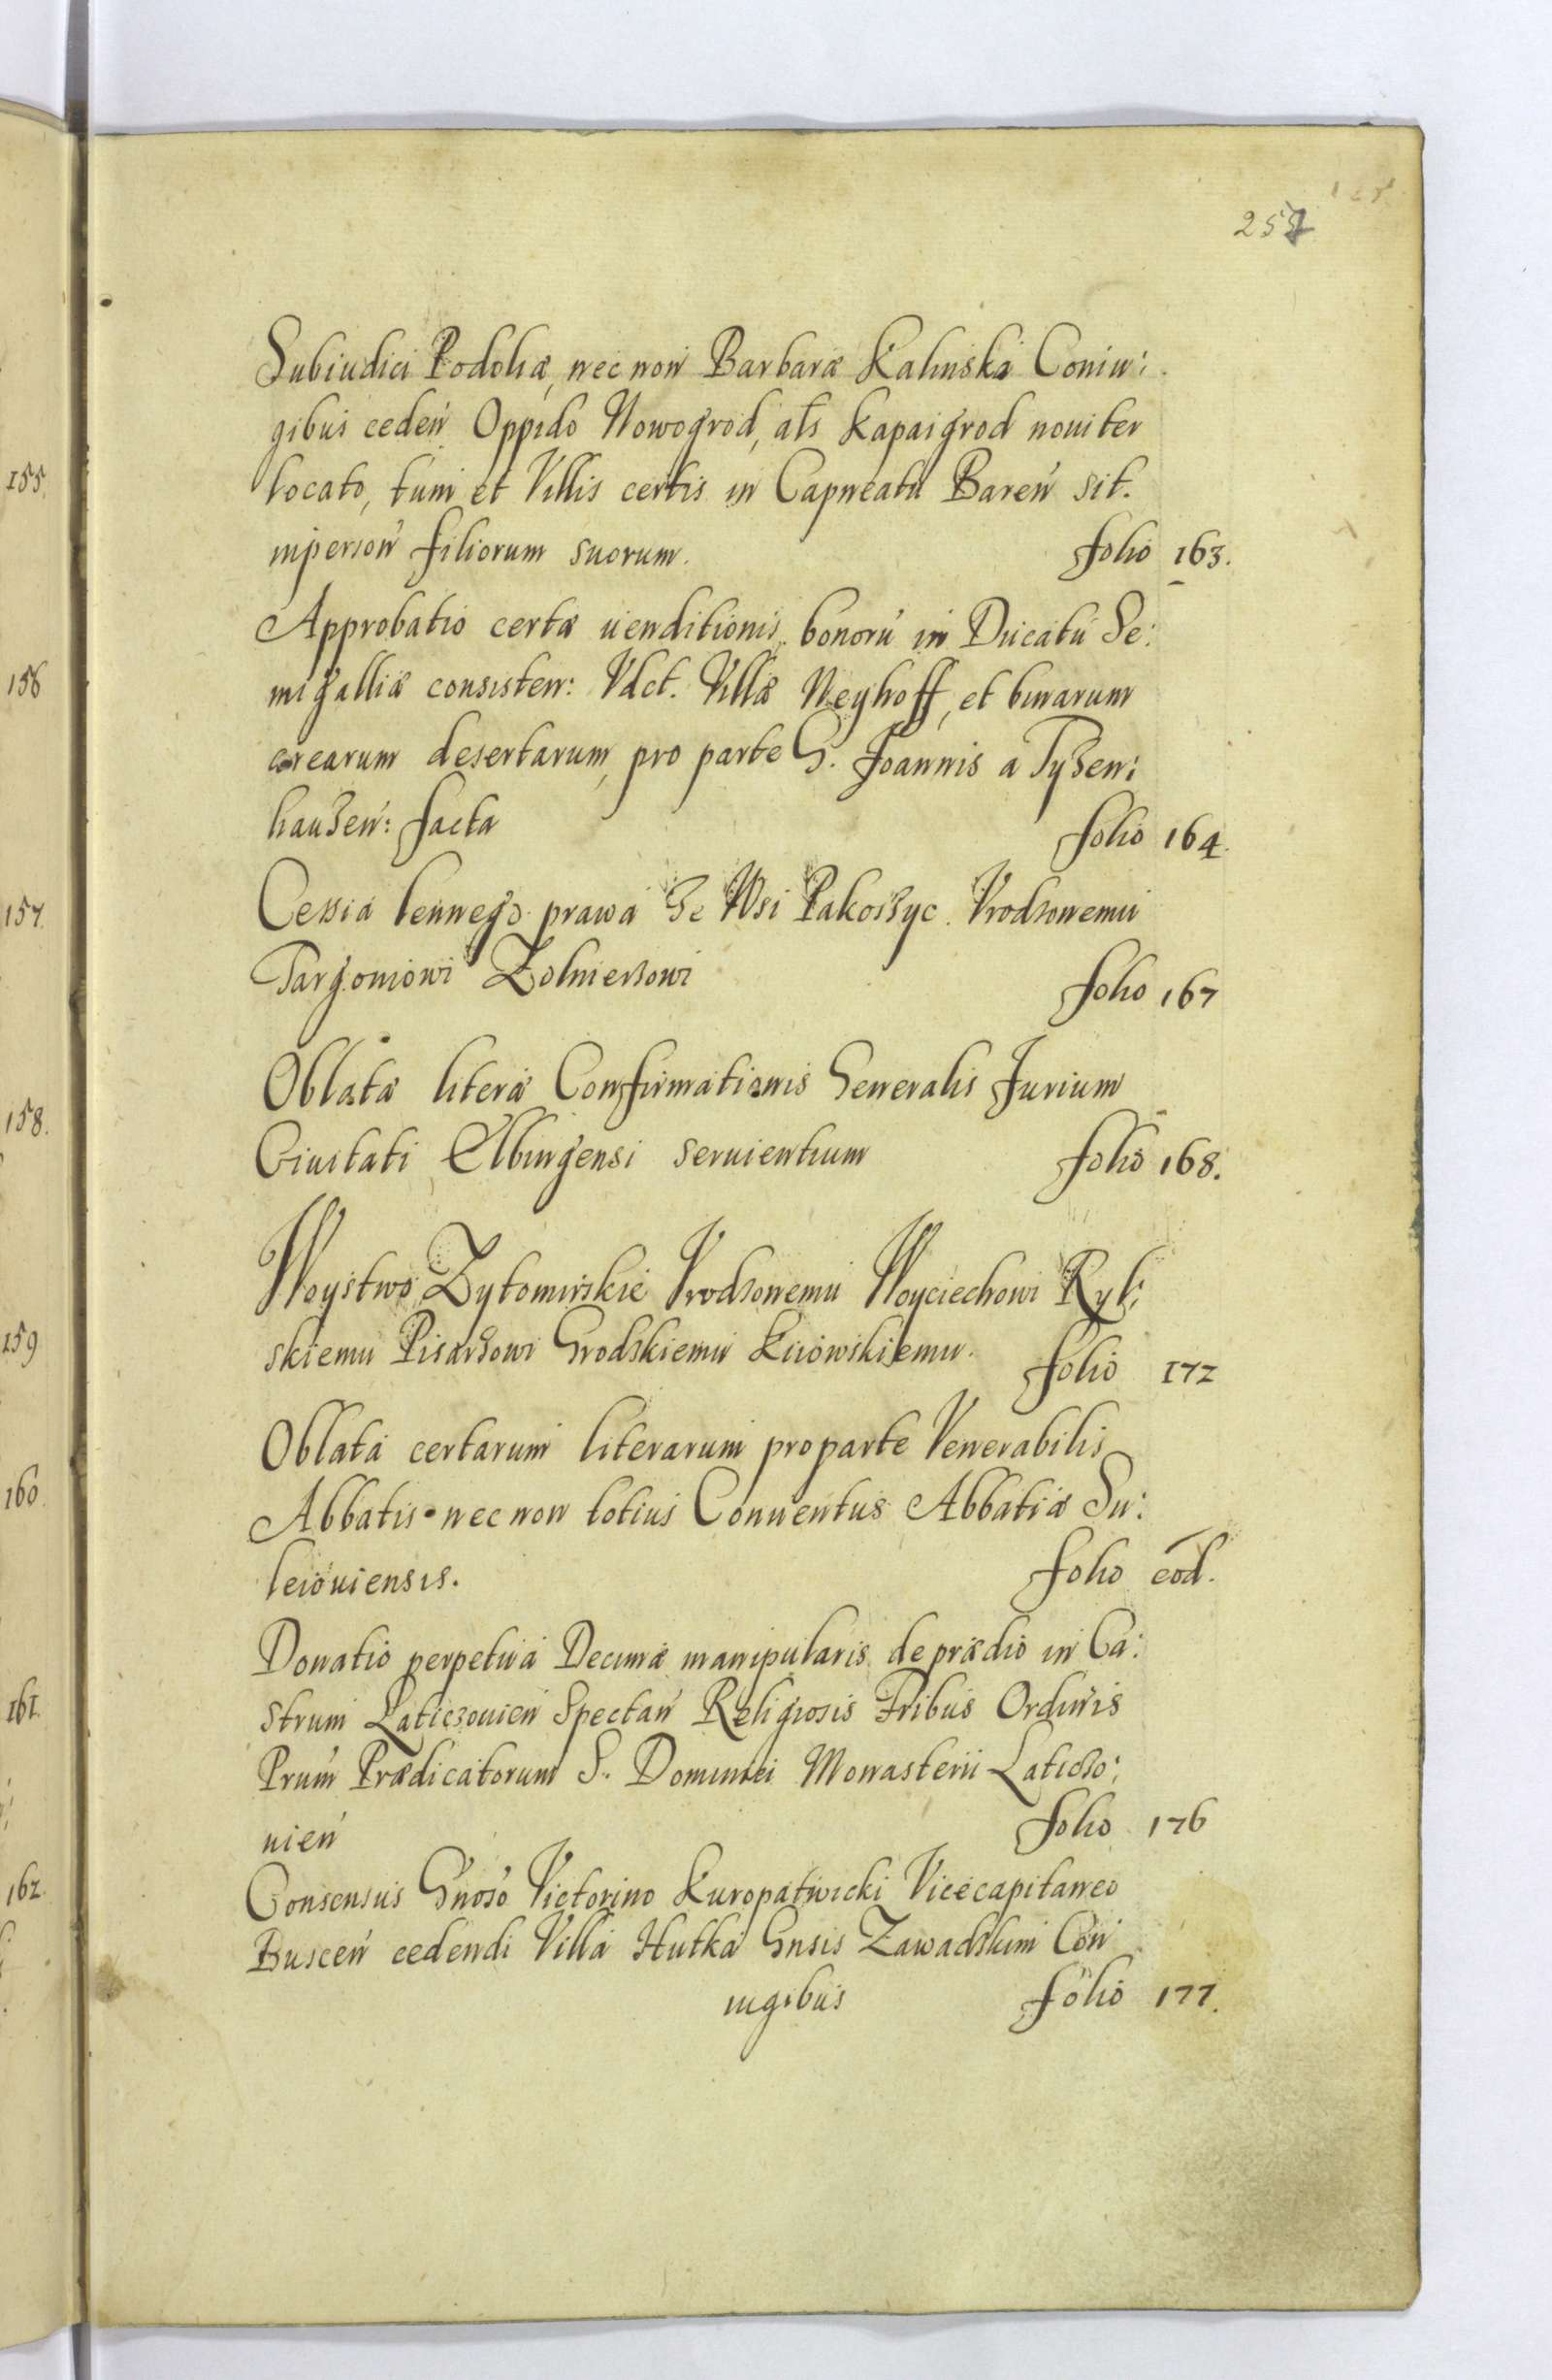 257
Subiudici Podoliæ, nec non Barbaræ Kalinska Coniu:
gibus ceden Oppido Nowogrod, als Kapaigrod nouiter
locato, tum et Villis certis in Capneatu Baren sit.
inperson filiorum suorum. folio 163.
Approbatio certæ uenditionis bonorū in Ducatu Se:
migalliæ consisten: Vdct. Villæ Neyhoff, et binarum
arearum desertarum, pro parte G. Joannis a Tyzen:
hauzen: facta folio 164.
Cessia lennego prawa ze Wsi Pakoszyc Vrodzonemu
Targoniowi Zolnierzowi folio 167
Oblatæ literæ Confirmationis Generalis Jurium
Ciuitati Elbingensi seruientium folio 168.
Woystwo Zytomirskie Vrodzonemu Woyciechowi Ryl:
skiemu Pisarzowi Grodzkiemu Kiiowskiemu. folio 172
Oblata certarum literarum pro parte Venerabilis
Abbatis nec non totius Conuentus Abbatiæ Su:
leiouiensis. folio eod.
Donatio perpetua Decimæ manipularis de prædio in Ca:
strum Laticzouien Spectan Religiosis Fribus Ordinis
Prum Prædicatorum S. Dominici Monasterii Laticzo:
uien folio 176
Consensus Gnoso Victorino Kuropatwicki Vicecapitaneo
Buscen cedendi Villa Hutka Gnsis Zawadzkim Con
iugibus folio 177.
155.
156
157.
158.
159
160.
161.
162.